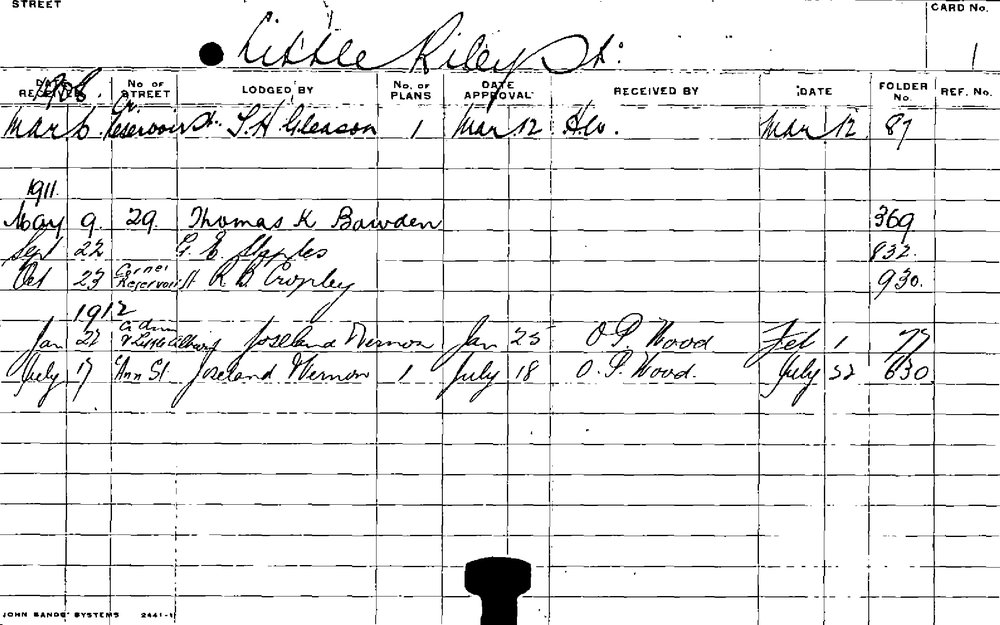 STREET
CARD No.
Little Riley St.
1
DATE RECEIVED No OF STREET LODGED BY No. OF PLANS DATE APPROVAL RECEIVED BY DATE FOLDER No. REF. No.
1908. Cr.
Mar 6 Reservoir St. S H Gleason 1 Mar 12 Mar 12 87
1911.
May 9. 29. Thomas K Bowden 369
Sept 22 G. E. Staples 832.
Oct 23 Corner Reservoir St R B Cropley 930.
1912
Jan 22 & Little Albion Joseland & Vernon Jan 25 O. P. Wood Feb 1 77
July 17 Ann St. Joseland & Vernon 1 July 18 O. P. Wood. July 22 630
JOHN SANDS' SYSTEMS 2441-1